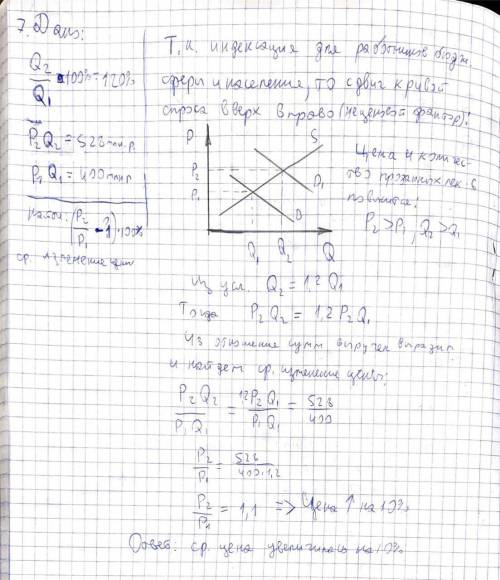 7. Дано:
Q2/Q1 · 100% = 120%
P2Q2 = 528 млн.р.
P1Q1 = 400 млн.р.
Найти: (P2/P1 - 1) · 100%
ср. изменение цен
Т.к. индексация для работников бюдж
сферы и население, то сдвиг кривой
спроса вверх вправо (неценовой фактор):
P
S
P2
P1
D1
D
Q1 Q2 Q
Цена и количес-
тво проданных лек-в
повысится:
P2 > P1, Q2 > Q1
Из усл. Q2 = 1,2 Q1
Тогда P2Q2 = 1,2 P2Q1
Из отношение сумм выручек выразим
и найдем ср. изменение цены:
P2Q2/P1Q1 = 1,2P2Q1/P1Q1 = 528/400
P2/P1 = 528/400·1,2
P2/P1 = 1,1 => Цена ↑ на 10%
Ответ: ср. цена увеличилась на 10%